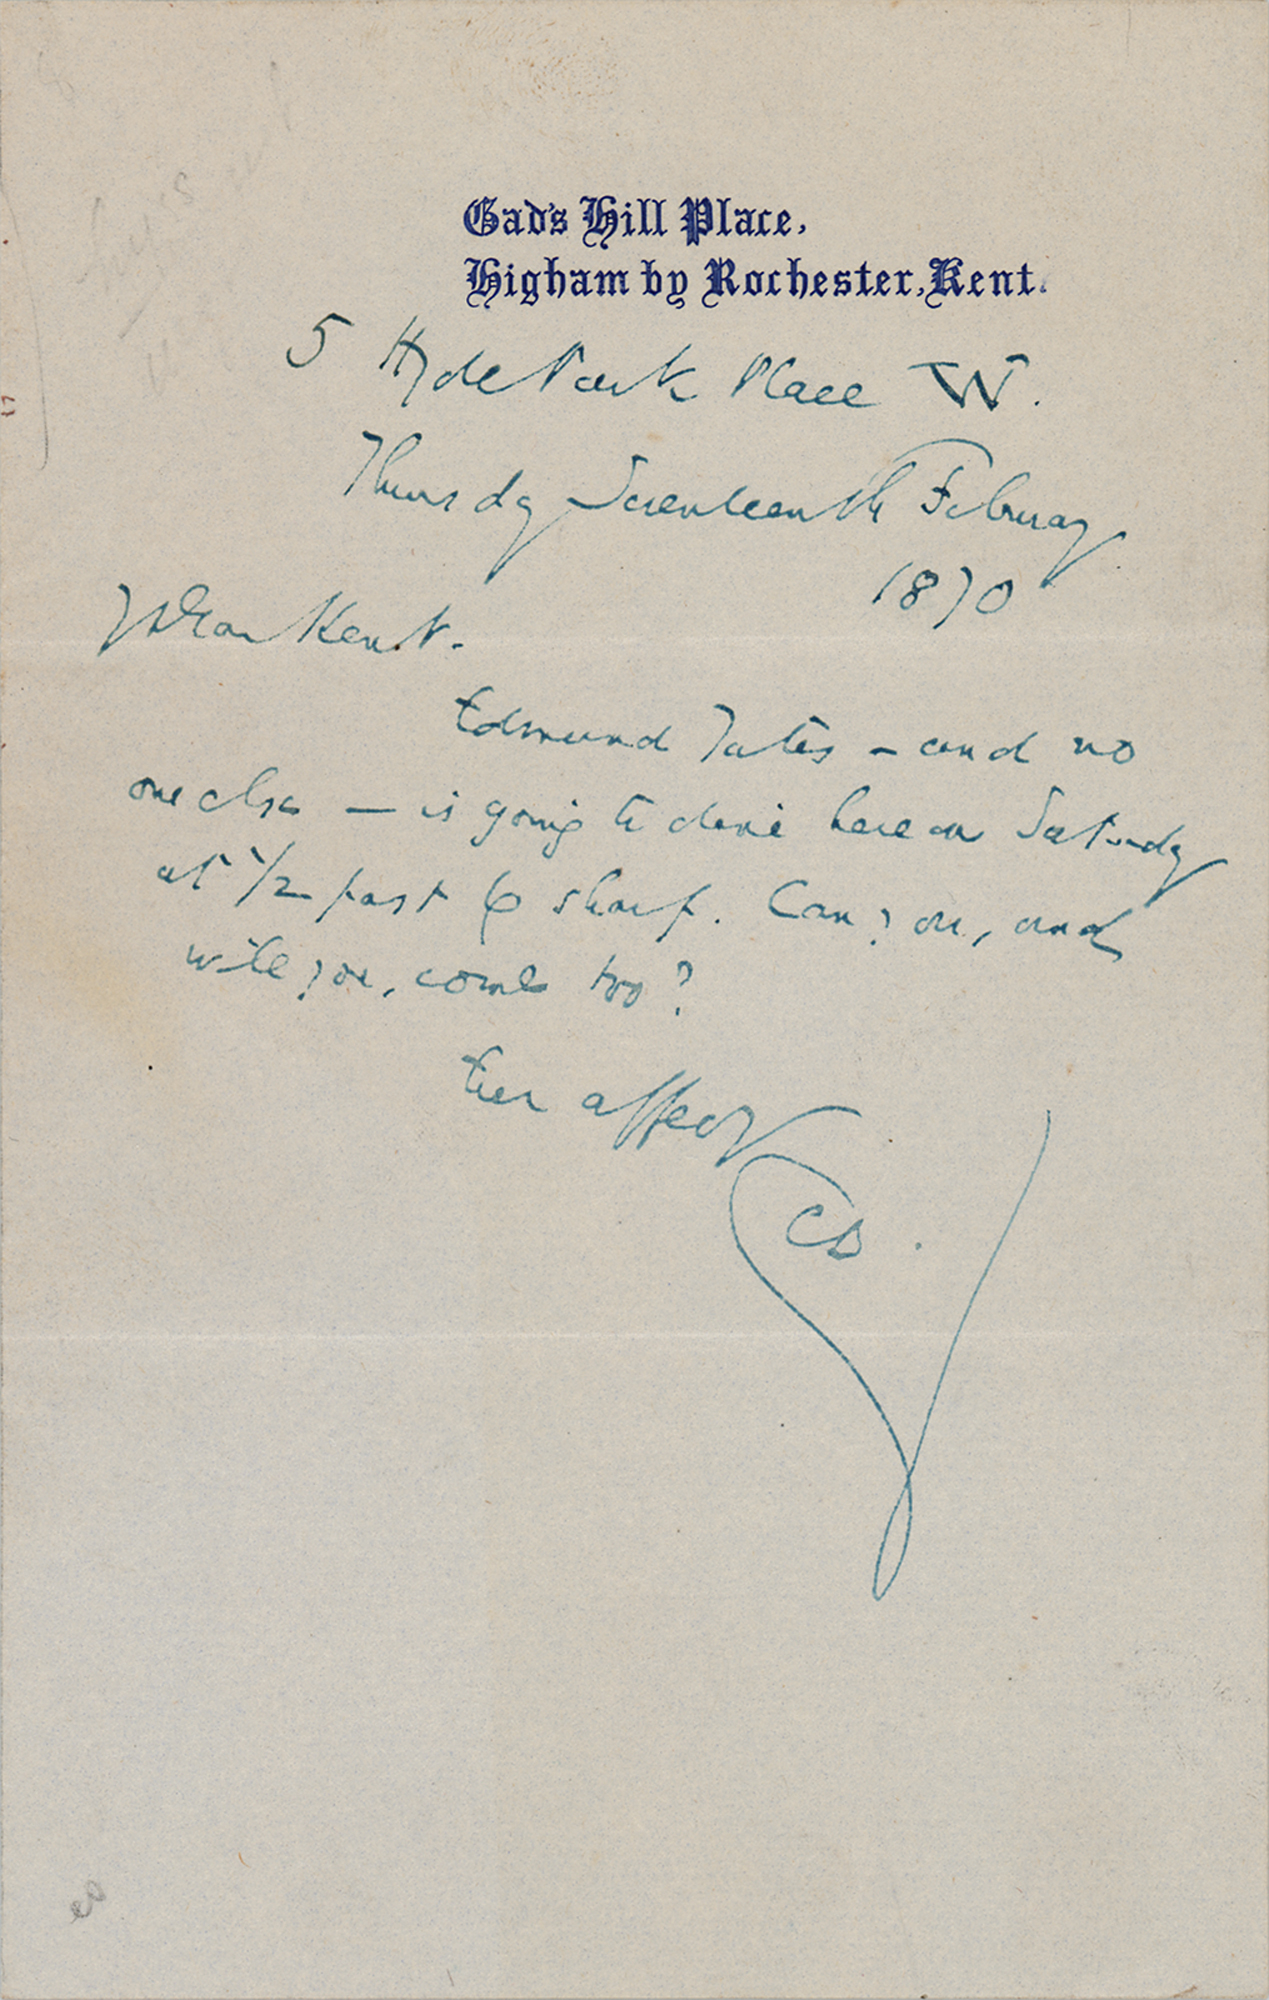 Gad's Hill Place,
Higham by Rochester, Kent.
5 Hyde Park Place W.
Thursday Seventeenth February
1870
My Dear Kent.
Edmund Yates – and no
one else – is going to dine here on Saturday
at 1/2 past 6 sharp. Can you, and
will you, come too?
Ever affecy
CD.